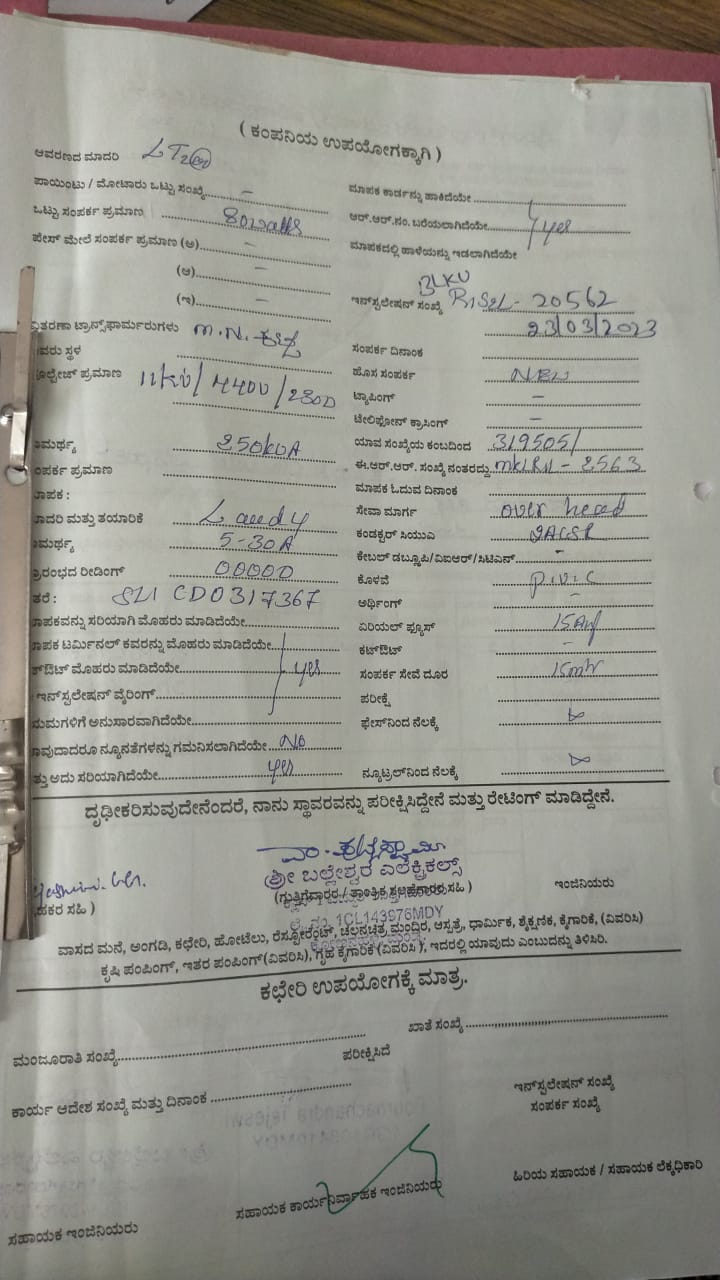 ( ಕಂಪನಿಯ ಉಪಯೋಗಕ್ಕಾಗಿ )
ಆವರಣದ ಮಾದರಿ LT2
ಪಾಯಿಂಟು / ಮೋಟಾರು ಒಟ್ಟು ಸಂಖ್ಯೆ –
ಒಟ್ಟು ಸಂಪರ್ಕ ಪ್ರಮಾಣ 80watts
ಫೇಸ್ ಮೇಲೆ ಸಂಪರ್ಕ ಪ್ರಮಾಣ (ಅ) –
(ಆ) –
(ಇ) –
ವಿತರಣಾ ಟ್ರಾನ್ಸ್‌ಫಾರ್ಮರುಗಳು M.N.
ವರು ಸ್ಥಳ
ಪ್ರಮಾಣ 11kv/440v/230
ಮರ್ಥ್ಯ 250kVA
ಂಪರ್ಕ ಪ್ರಮಾಣ
ಾಪಕ :
ಾದರಿ ಮತ್ತು ತಯಾರಿಕೆ
ಮರ್ಥ್ಯ 5-30A
ರಂಭದ ರೀಡಿಂಗ್ 00000
CD0317367
ಾಪಕವನ್ನು ಸರಿಯಾಗಿ ಮೊಹರು ಮಾಡಿದೆಯೇ
ಾಪಕ ಟರ್ಮಿನಲ್ ಕವರನ್ನು ಮೊಹರು ಮಾಡಿದೆಯೇ
ಮೊಹರು ಮಾಡಿದೆಯೇ yes
ಇನ್‌ಸ್ಟಲೇಷನ್ ವೈರಿಂಗ್
ಯಮಗಳಿಗೆ ಅನುಸಾರವಾಗಿದೆಯೇ
ಾವುದಾದರೂ ನ್ಯೂನತೆಗಳನ್ನು ಗಮನಿಸಲಾಗಿದೆಯೇ No
ತ್ತು ಅದು ಸರಿಯಾಗಿದೆಯೇ yes
ಮಾಪಕ ಕಾರ್ಡನ್ನು ಹಾಕಿದೆಯೇ
ಆರ್.ಆರ್.ನಂ. ಬರೆಯಲಾಗಿದೆಯೇ yes
ಮಾಪಕದಲ್ಲಿ ಹಾಳೆಯನ್ನು ಇಡಲಾಗಿದೆಯೇ
ಇನ್‌ಸ್ಟಲೇಷನ್ ಸಂಖ್ಯೆ 20562
23/03/2023
ಸಂಪರ್ಕ ದಿನಾಂಕ
ಹೊಸ ಸಂಪರ್ಕ NEW
ಟ್ಯಾಪಿಂಗ್ –
ಟೆಲಿಫೋನ್ ಕ್ರಾಸಿಂಗ್ –
ಯಾವ ಸಂಖ್ಯೆಯ ಕಂಬದಿಂದ 319505/
ಈ.ಆರ್.ಆರ್. ಸಂಖ್ಯೆ ನಂತರದ್ದು 2563
ಮಾಪಕ ಓದುವ ದಿನಾಂಕ
ಸೇವಾ ಮಾರ್ಗ over head
ಕಂಡಕ್ಟರ್ ಸಿಯುಎ
ಕೇಬಲ್ ಡಬ್ಲ್ಯೂಪಿ/ವಿಐಆರ್/ಸಿಟಿಎಸ್ –
ಕೊಳವೆ p.v.c
ಅರ್ಥಿಂಗ್ –
ಏರಿಯಲ್ ಫ್ಯೂಸ್ 15Amp
ಕಟ್‌ಔಟ್ –
ಸಂಪರ್ಕ ಸೇವೆ ದೂರ 15mtr
ಪರೀಕ್ಷೆ
ಫೇಸ್‌ನಿಂದ ನೆಲಕ್ಕೆ
ನ್ಯೂಟ್ರಲ್‌ನಿಂದ ನೆಲಕ್ಕೆ
ದೃಢೀಕರಿಸುವುದೇನೆಂದರೆ, ನಾನು ಸ್ಥಾವರವನ್ನು ಪರೀಕ್ಷಿಸಿದ್ದೇನೆ ಮತ್ತು ರೇಟಿಂಗ್ ಮಾಡಿದ್ದೇನೆ.
ಶ್ರೀ ಬಲ್ಲೇಶ್ವರ ಎಲೆಕ್ಟ್ರಿಕಲ್ಸ್
ಹಕರ ಸಹಿ )
(ಗುತ್ತಿಗೆದಾರರ / ತಾಂತ್ರಿಕ ಸಲಹೆಗಾರರ ಸಹಿ )
ಇಂಜಿನಿಯರು
1CL143976MDY
ವಾಸದ ಮನೆ, ಅಂಗಡಿ, ಕಛೇರಿ, ಹೋಟೆಲು, ರೆಸ್ಟೋರೆಂಟ್, ಚಲನಚಿತ್ರ ಮಂದಿರ, ಆಸ್ಪತ್ರೆ, ಧಾರ್ಮಿಕ, ಶೈಕ್ಷಣಿಕ, ಕೈಗಾರಿಕೆ, (ವಿವರಿಸಿ)
ಕೃಷಿ ಪಂಪಿಂಗ್, ಇತರ ಪಂಪಿಂಗ್(ವಿವರಿಸಿ), ಗೃಹ ಕೈಗಾರಿಕೆ (ವಿವರಿಸಿ ), ಇದರಲ್ಲಿ ಯಾವುದು ಎಂಬುದನ್ನು ತಿಳಿಸಿರಿ.
ಕಛೇರಿ ಉಪಯೋಗಕ್ಕೆ ಮಾತ್ರ.
ಮಂಜೂರಾತಿ ಸಂಖ್ಯೆ
ಖಾತೆ ಸಂಖ್ಯೆ
ಪರೀಕ್ಷಿಸಿದೆ
ಕಾರ್ಯ ಆದೇಶ ಸಂಖ್ಯೆ ಮತ್ತು ದಿನಾಂಕ
ಇನ್‌ಸ್ಟಲೇಷನ್ ಸಂಖ್ಯೆ
ಸಂಪರ್ಕ ಸಂಖ್ಯೆ
ಸಹಾಯಕ ಇಂಜಿನಿಯರು
ಸಹಾಯಕ ಕಾರ್ಯನಿರ್ವಾಹಕ ಇಂಜಿನಿಯರು
ಹಿರಿಯ ಸಹಾಯಕ / ಸಹಾಯಕ ಲೆಕ್ಕಧಿಕಾರಿ